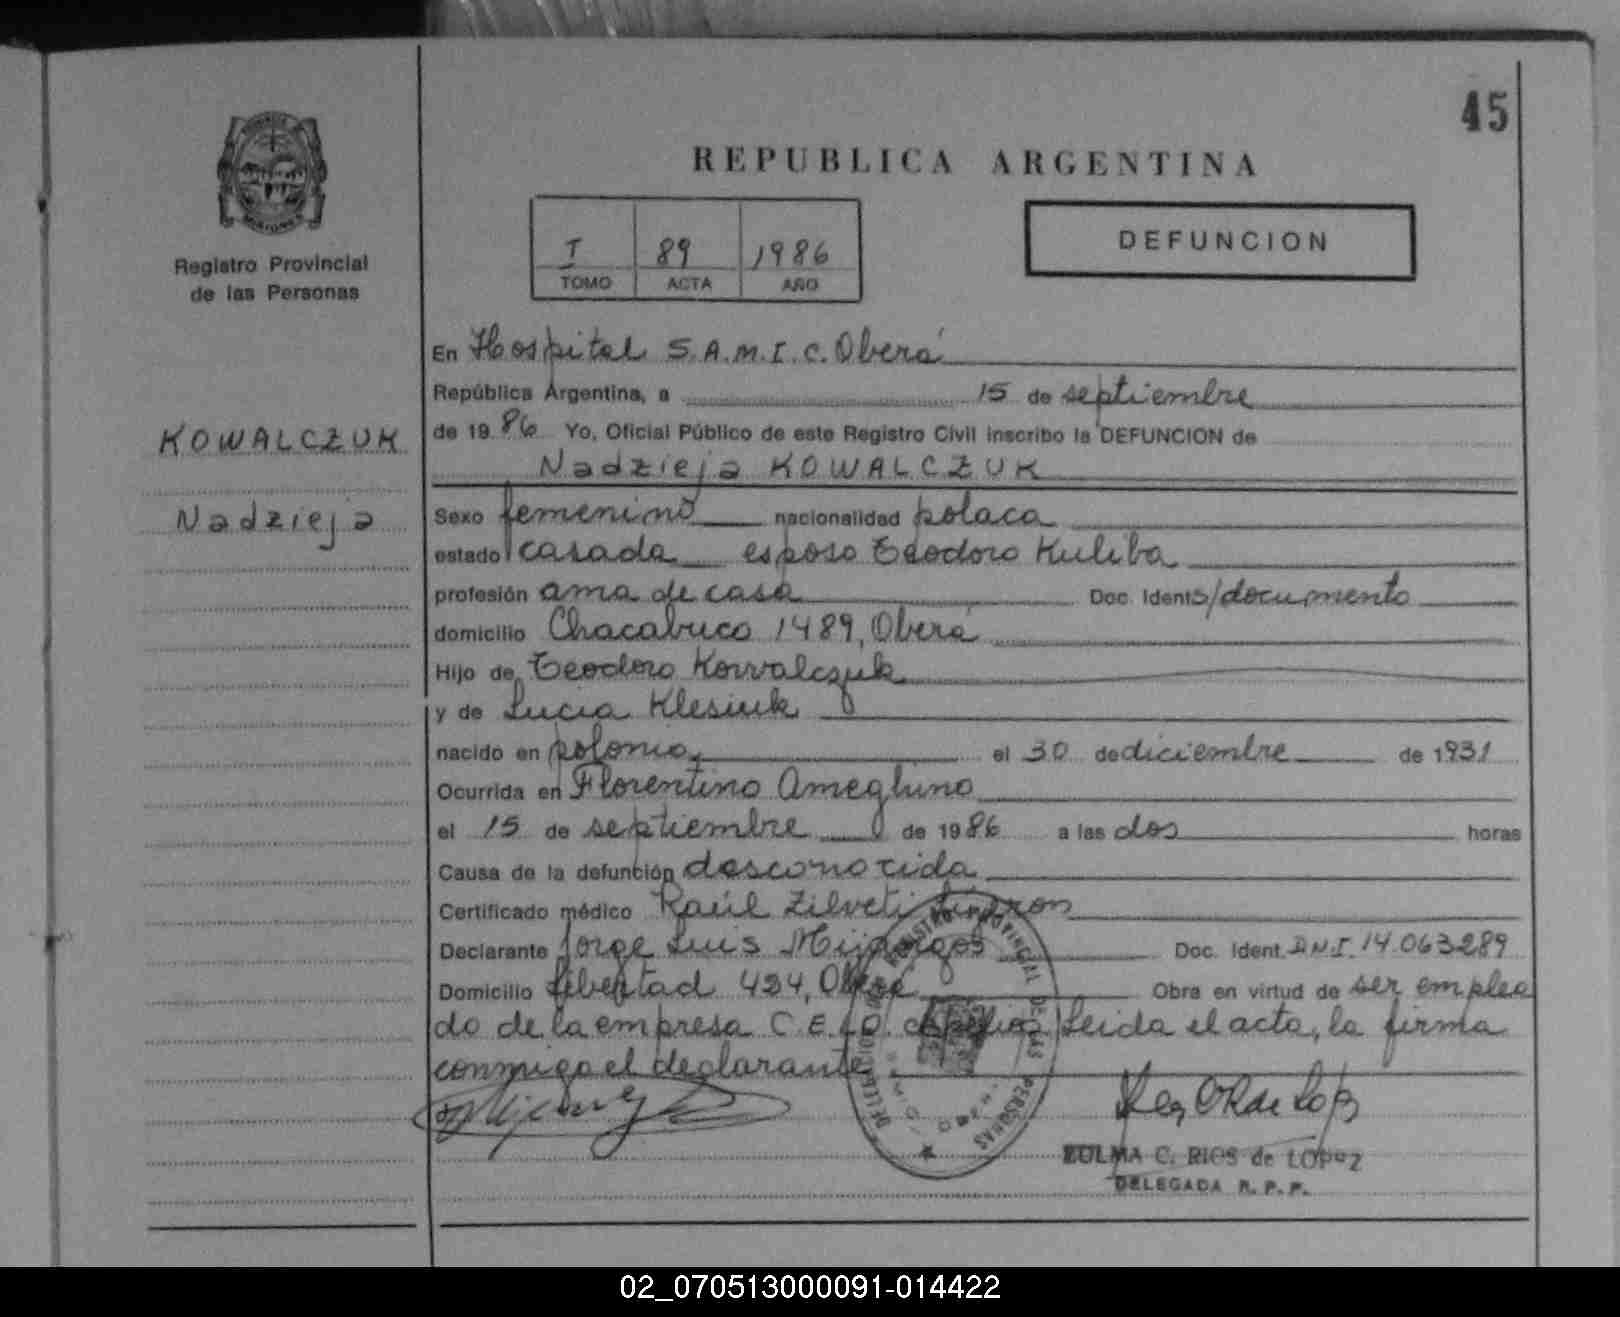 45
REPUBLICA ARGENTINA
I 89 1986
TOMO ACTA AÑO
DEFUNCION
Registro Provincial
de las Personas
KOWALCZUK
Nadzieja
En Hospital S.A.M.I.C. Oberá
República Argentina, a 15 de septiembre
de 1986 Yo, Oficial Público de este Registro Civil inscribo la DEFUNCION de
Nadzieja KOWALCZUK
Sexo femenino nacionalidad polaca
estado casada esposo Teodoro Kuliba
profesión ama de casa Doc. Ident s/documento
domicilio Chacabuco 1489, Oberá
Hijo de Teodoro Kowalczuk
y de Lucia Klesiuk
nacido en polonia, el 30 de diciembre de 1931
Ocurrida en Florentino Ameghino
el 15 de septiembre de 1986 a las dos horas
Causa de la defunción desconocida
Certificado médico Raúl Zilveti
Declarante Jorge Luis Doc. Ident. D.N.I. 14.063289
Domicilio Libertad 424, Oberá Obra en virtud de ser emplea
do de la empresa C.E.L.O. Leida el acta, la firma
conmigo el declarante
REGISTRO PROVINCIAL DE LAS PERSONAS
ZULMA C. RIOS de LOPEZ
DELEGADA R. P. P.
02_070513000091-014422